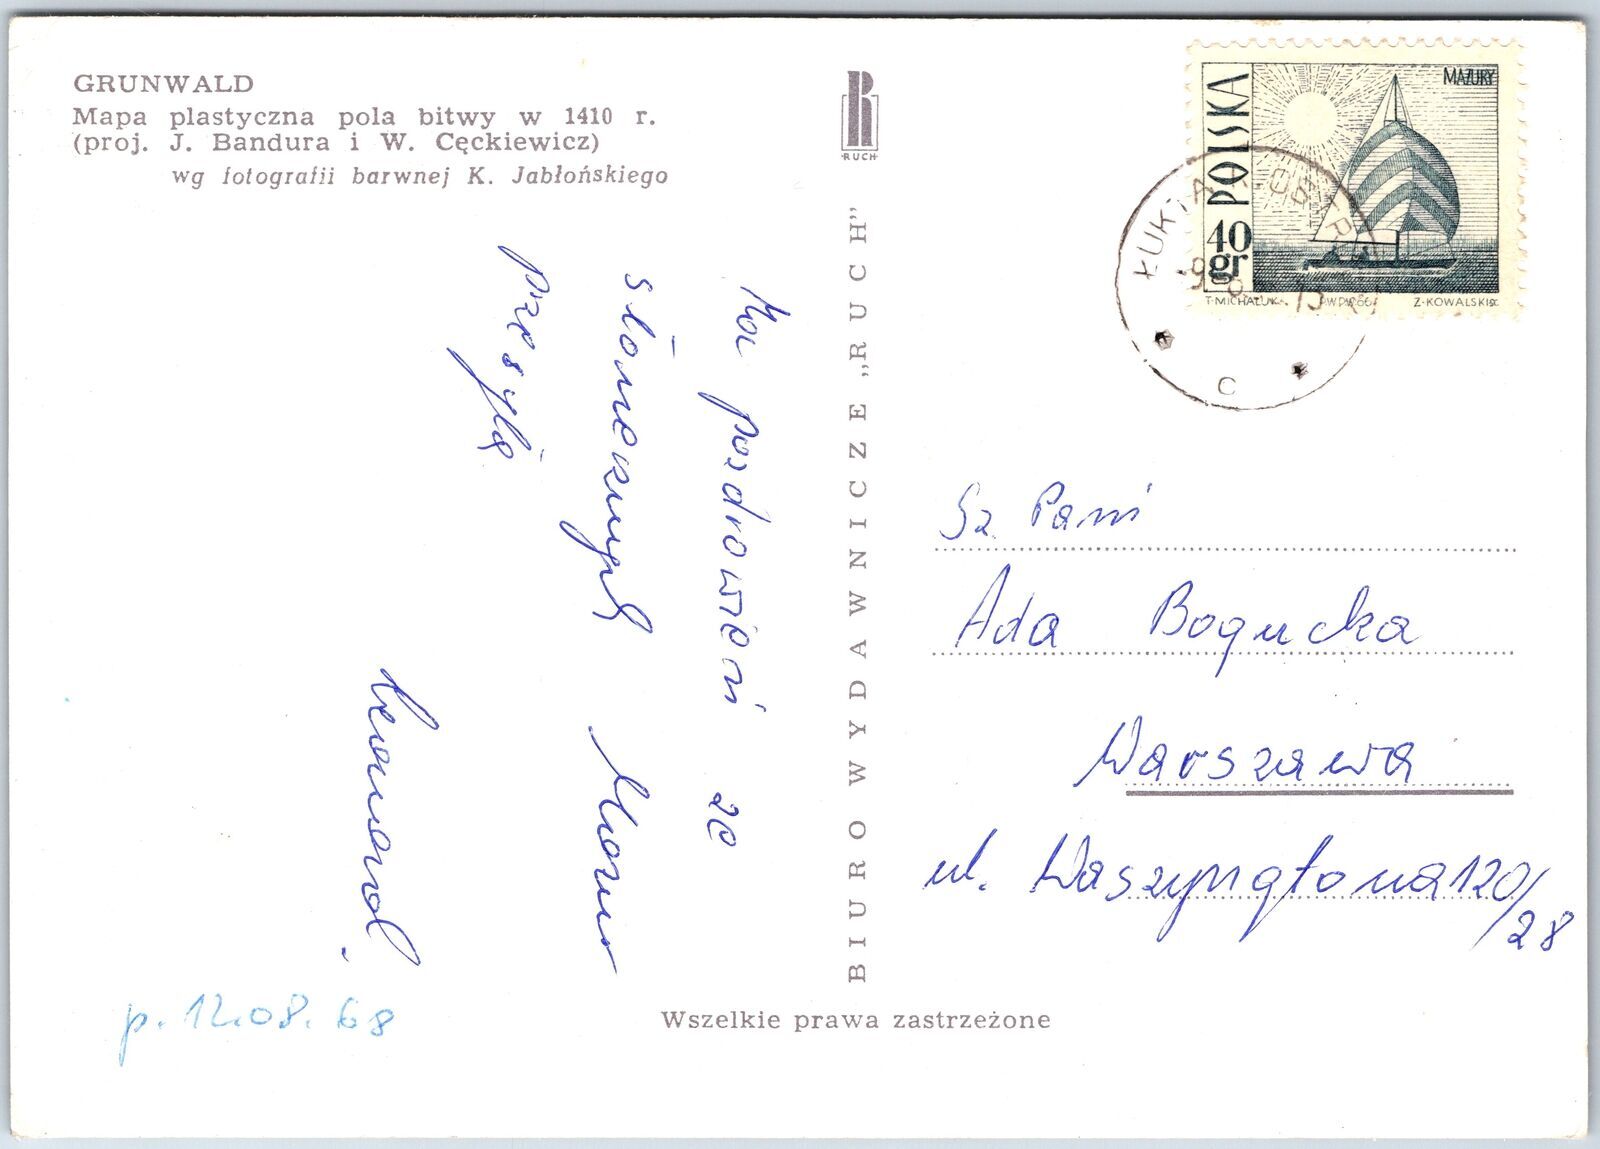 GRUNWALD
Mapa plastyczna pola bitwy w 1410 r.
(proj. J. Bandura i W. Cęckiewicz)
wg fotografii barwnej K. Jabłońskiego
RUCH
MAZURY
POLSKA
40
gr
T·MICHALUK
PWPW·66
Z·KOWALSKI SC
ŁUKTA K. OSTR
-9
C
pozdrowień ze
słonecznych Mazur
przesyła
BIURO WYDAWNICZE „RUCH"
Sz. Pani
Ada Bogucka
Warszawa
ul. Waszyngtona 120/28
p. 12.08.68
Wszelkie prawa zastrzeżone